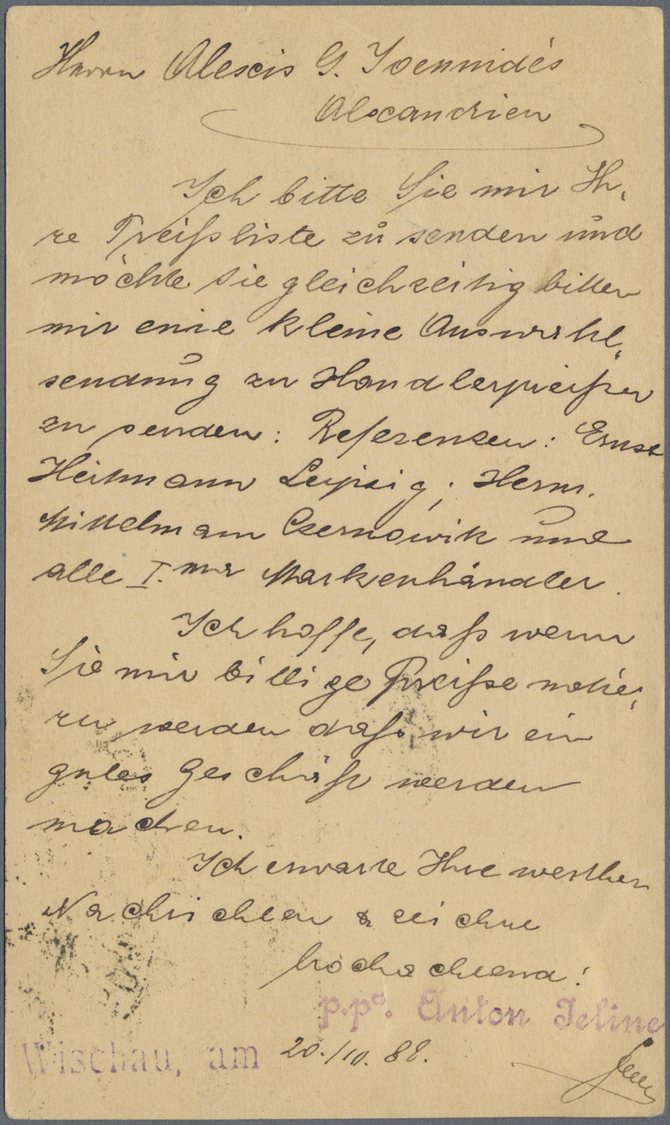 Herrn Alexis G. Joennidés
Alexandrien
Ich bitte Sie mir Ih-
re Preißliste zu senden und
möchte Sie gleichzeitig bitten
mir eine kleine Auswahl-
sendung zu Handlerpreißen
zu senden: Referenzen: Ernst
Heitmann Leipzig; Herm.
Mittelmann Czernowik und
alle I. Markenhändler.
Ich hoffe, daß wenn
Sie mir billige Preiße notie-
ren werden daß wir ein
gutes Geschäft werden
machen.
Ich erwarte Ihre werthen
Nachrichten & zeichne
hochachtend!
p.pa. Anton Jeline
Wischau, am 20./10. 88.